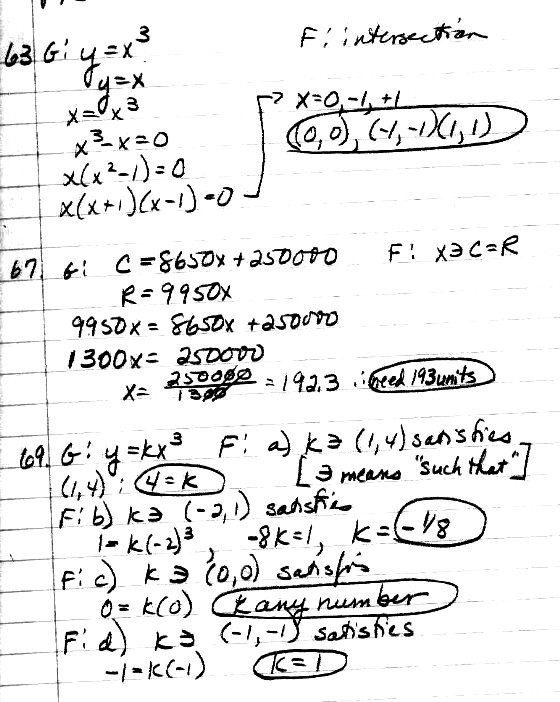 63 G: y=x³
F: intersection
y=x
x=x³
x³-x=0
x(x²-1)=0
x(x+1)(x-1)=0
→ x=0,-1,+1
(0,0), (-1,-1)(1,1)
67. G: C=8650x+250000 F: x∋C=R
R=9950x
9950x=8650x+250000
1300x=250000
x=250000/1300=192.3 ∴ need 193 units
69. G: y=kx³ F: a) k∋(1,4) satisfies
[∋ means "such that"]
(1,4): 4=k
F: b) k∋(-2,1) satisfies
1=k(-2)³, -8k=1, k=-1/8
F: c) k∋(0,0) satisfis
0=k(0) k any number
F: d) k∋(-1,-1) satisfies
-1=k(-1) k=1